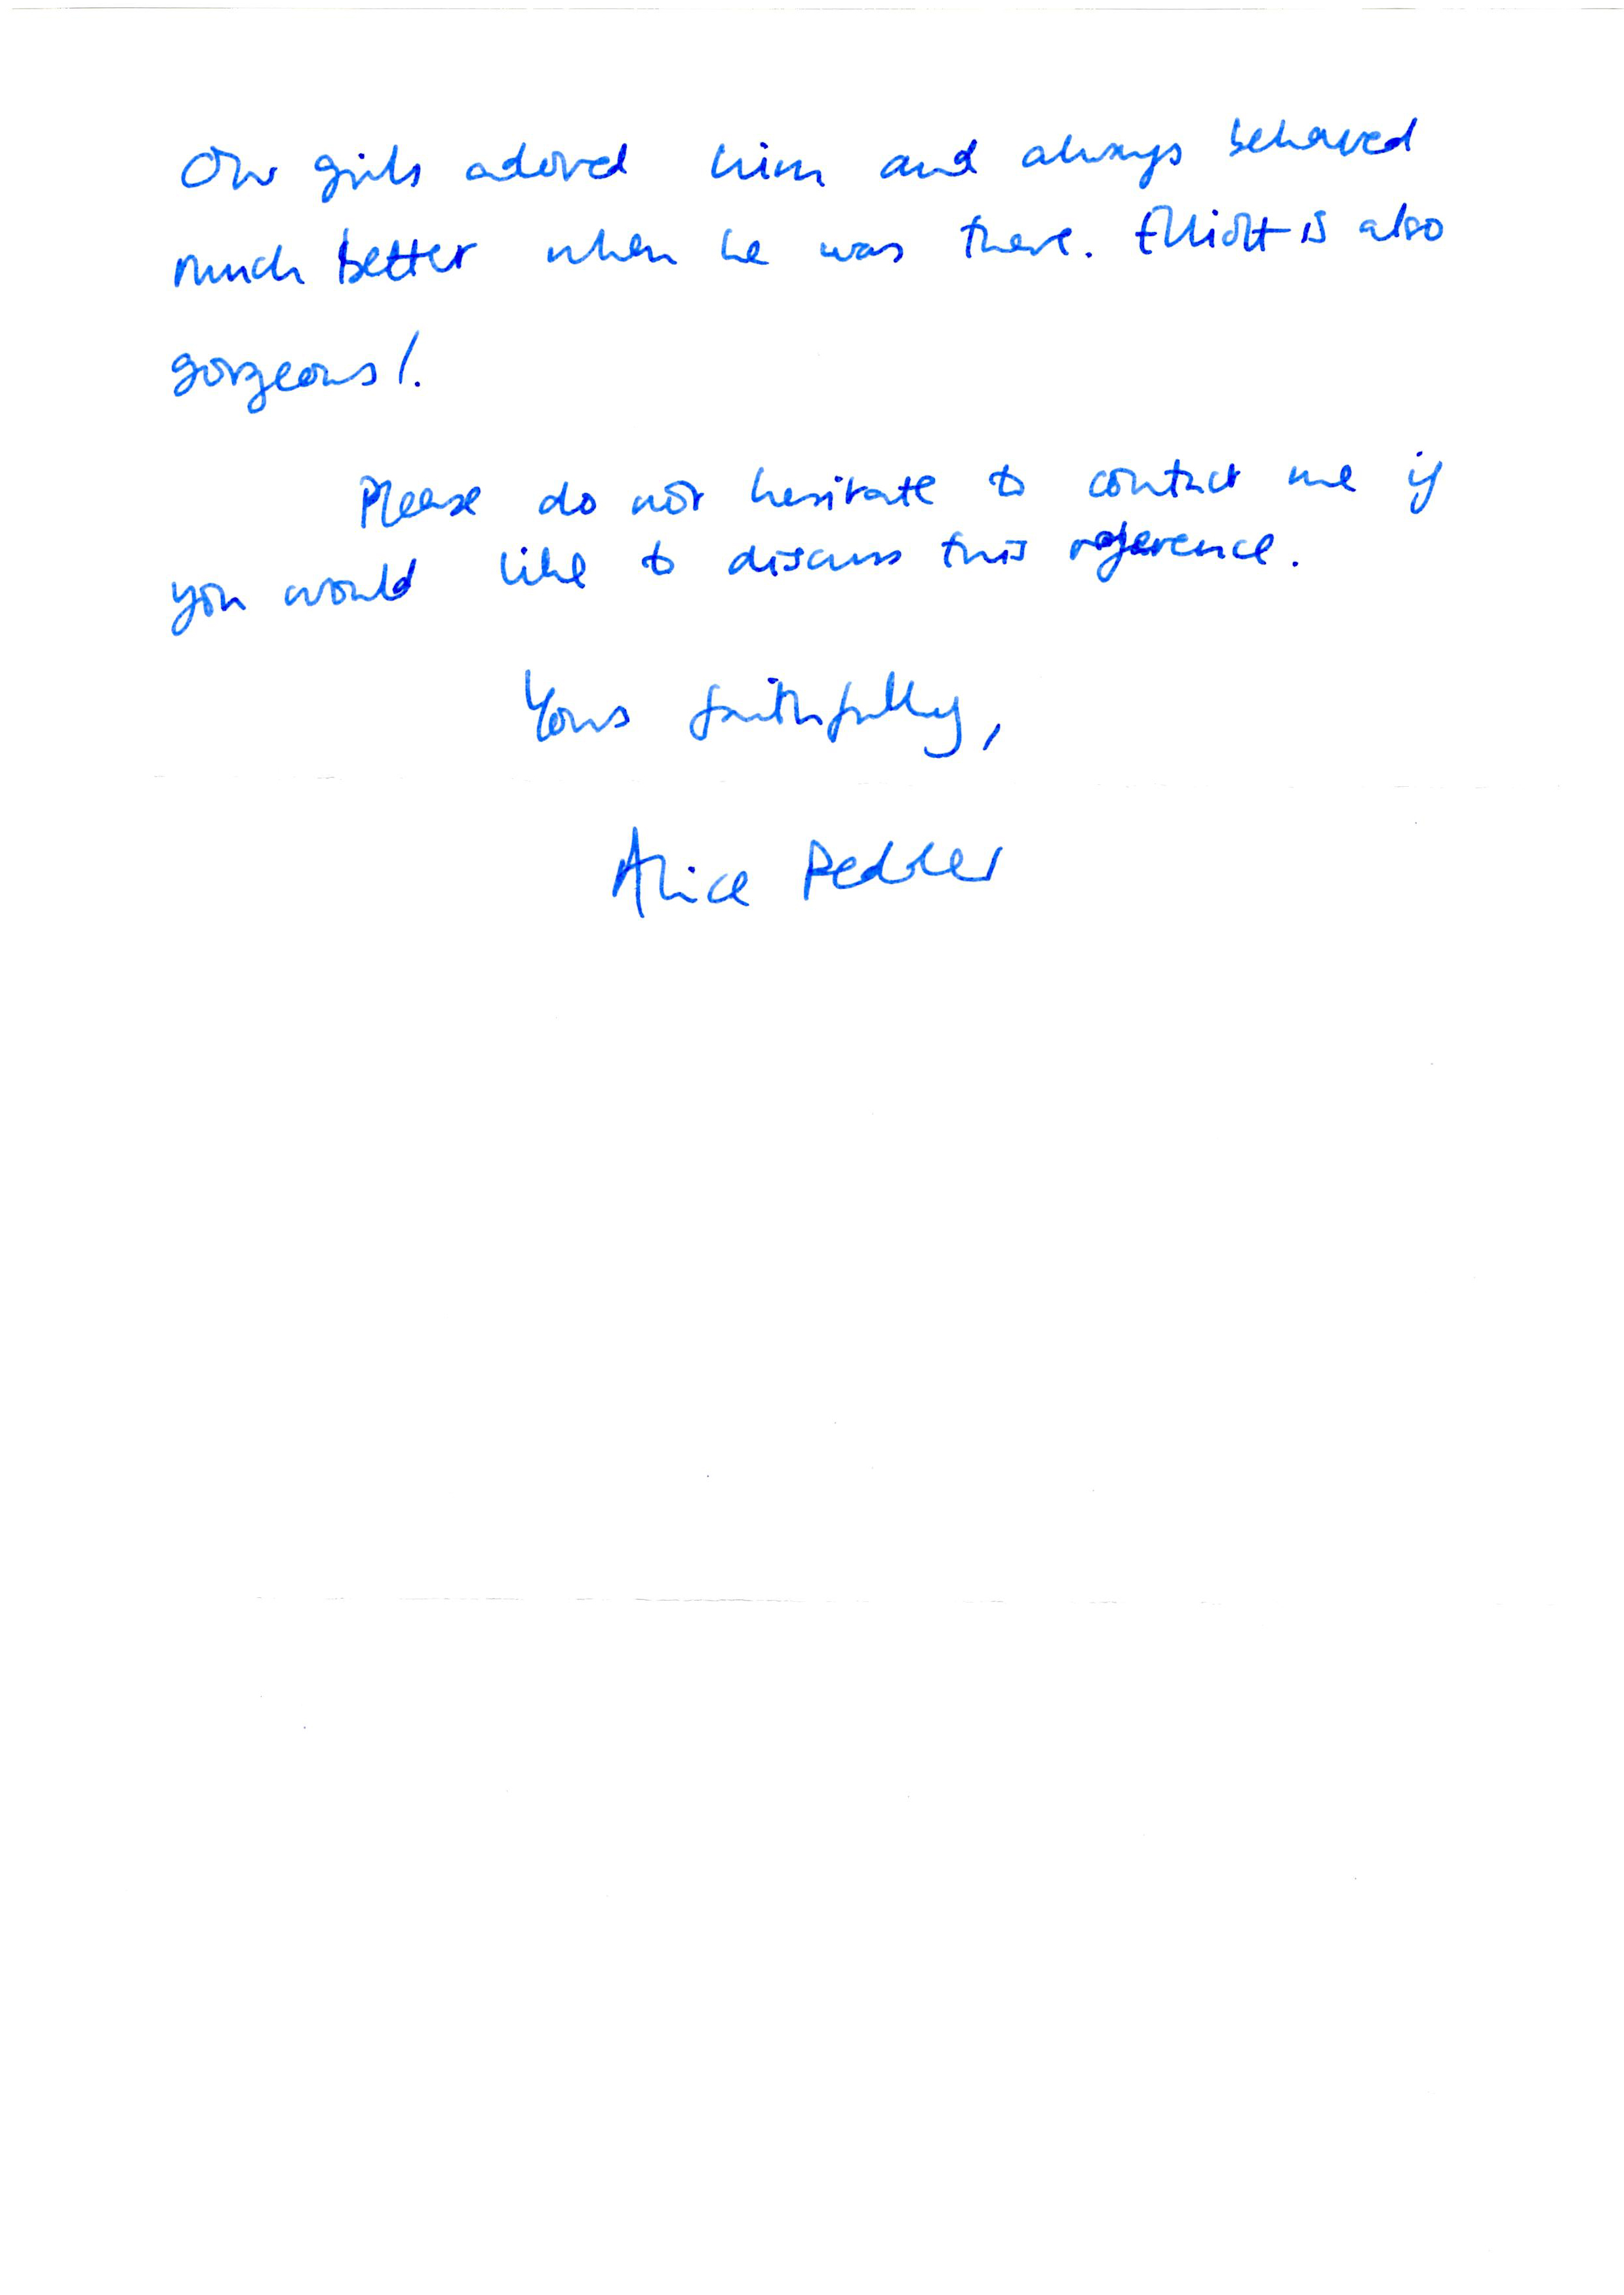 Our girls adored him and always behaved
much better when he was there. Elliott is also
gorgeous!
Please do not hesitate to contact me if
you would like to discuss this reference.
Yours faithfully,
Alice Pedder